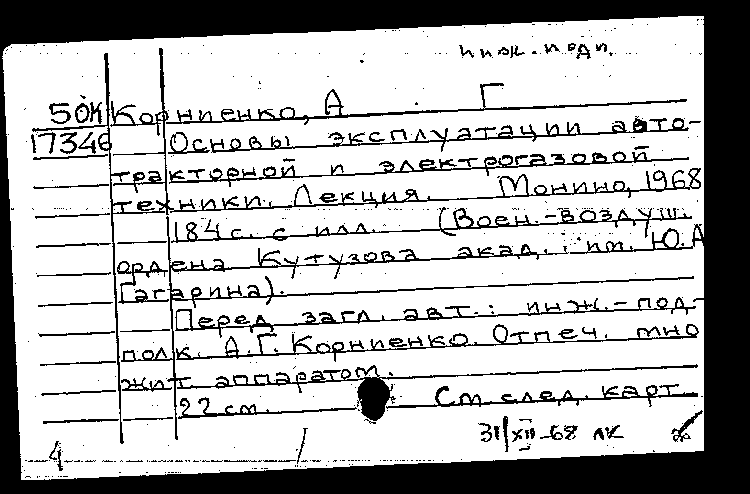 инж. подп.
50К Корниенко, А Г
17346 Основы эксплуатации авто-
тракторной и электрогазовой
техники. Лекция. Монино, 1968
184 с. с илл. (Воен.-воздуш.
ордена Кутузова акад. им. Ю.А
Гагарина).
Перед загл. авт.: инж.-под-
полк. А.Г. Корниенко. Отпеч. мно
жит аппаратом.
22 см. См след. карт
31/XII-68 лк
4